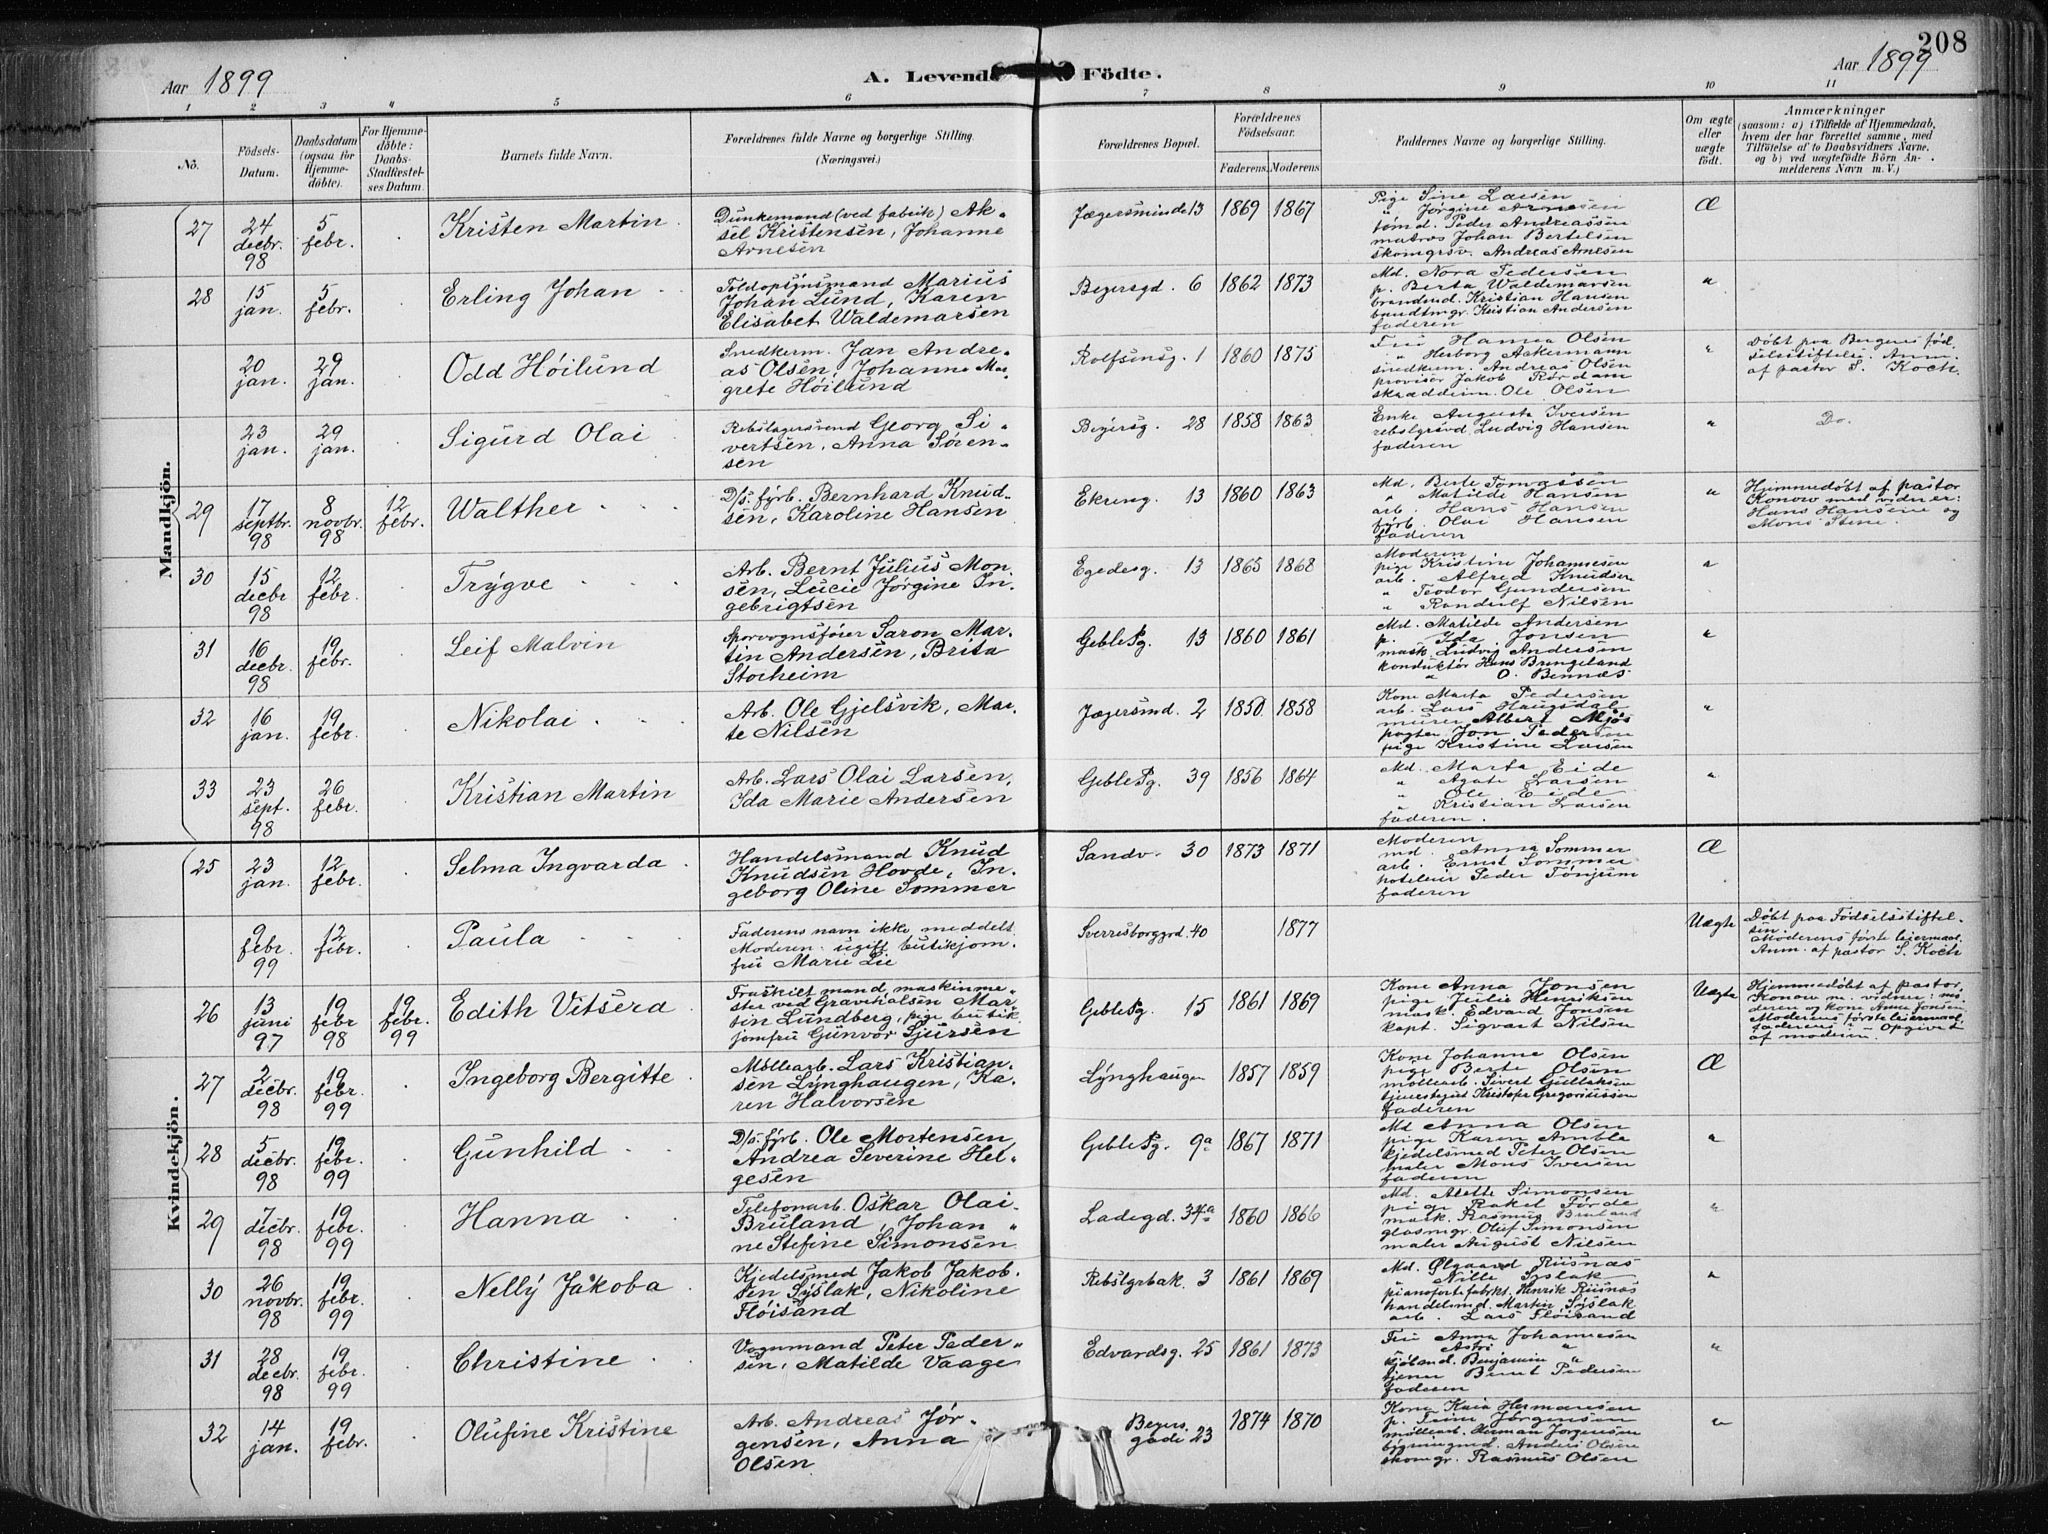 208
Aar 1899
A. Levende Födte.
Aar 1899
1 2 3 4 5 6 7 8 9 10 11
Nö.
Födsels-Datum.
Daabsdatum (ogsaa for Hjemmedöbte).
For Hjemmedöbte: Daabs-Stadfæstelses Datum.
Barnets fulde Navn.
Forældrenes fulde Navne og borgerlige Stilling.
(Næringsvei.)
Forældrenes Bopæl.
Forældrenes Födselsaar.
Faderens. Moderens
Faddernes Navne og borgerlige Stilling.
Om ægte eller uægte födt.
Anmærkninger
(saasom: a) i Tilfælde af Hjemmedaab, hvem der har forrettet samme, med Tilföielse af to Daabsvidners Navne, og b) ved uægtefödte Börn Anmelderens Navn m. V.)
Mandkjön.
27
24 decbr. 98
5 febr.
Kristen Martin
Dunkemand (ved fabrik) Ak-
sel Kristensen, Johanne
Arnesen
Jægersminde 13
1869 1867
Pige Sine Larsen
" Jørgine Arnesen
tømd. Peder Andreassen
matros Johan Bertelsen
skomgrsv. Andreas Arnesen
Æ
28
15 jan.
5 febr.
Erling Johan
Toldopsynsmand Marius
Johan Lund, Karen
Elisabet Waldemarsen
Beyersgd. 6
1862 1873
Md. Nora Pedersen
p. Berta Waldemarsen
brandcnd. Kristian Hansen
bundtmgr. Kristian Andersen
faderen
"
20 jan.
29 jan.
Odd Høilund
Snedkerm. Jan Andre-
as Olsen, Johanne Mar-
grete Høilund
Rolfsensg. 1
1860 1875
Fru Hanna Olsen
" Herborg Ackermann
snedkerm. Andreas Olsen
provisor Jakob Rørdam
skrædderm. Ole Olsen
"
Døbt paa Bergens fød-
selsstiftelse. Anm.
af pastor S. Koch.
23 jan.
29 jan.
Sigurd Olai
Rebslagersvend Georg Si-
vertsen, Anna Søren-
sen
Beyersg. 28
1858 1863
Enke Augusta Iversen
rebslgrsvd Ludvig Hansen
faderen
"
Do.
29
17 septbr. 98
8 novbr. 98
12 febr.
Walther
D/s. fyrb. Bernhard Knud-
sen, Karoline Hansen
Ekreng. 13
1860 1863
Md. Berte Tomassen
" Matilde Hansen
arb. Hans Hansen
fyrb. Olai Hansen
faderen
"
Hjemmedøbt af pastor
Konow med vidner:
Hans Hansen og
Mons Stene.
30
15 decbr 98
12 febr.
Trygve
Arb. Bernt Julius Mon-
sen, Lucie Jørgine In-
gebrigtsen
Egedesg. 13
1865 1868
Moderen
pige Kristine Johannesen
arb. Alfred Knudsen
" Teodor Gundersen
" Randulf Nilsen
"
31
16 decbr. 98
19 febr.
Leif Malvin
Sporvognsfører Saron Mar-
tin Andersen, Brita
Storheim
Geble Pg. 13
1860 1861
Md. Matilde Andersen
p. Ida Jonsen
mask. Ludvig Andersen
konduktør Hans Bringeland
" O. Bennæs
"
32
16 jan.
19 febr.
Nikolai
Arb. Ole Gjelsvik, Mar-
te Nilsen
Jægersmd. 2
1850 1858
Kone Marta Pedersen
arb. Lars Haugsdal
murer Albert Mjøs
Jon Pedersen
pige Kristine Larsen
"
33
23 sept. 98
26 febr.
Kristian Martin
Arb. Lars Olai Larsen,
Ida Marie Andersen
Geble Pg. 39
1856 1864
Md. Marta Eide
" Agate Larsen
" Ole Eide
" Kristian Larsen
faderen.
"
Kvindekjön.
25
23 jan.
12 febr.
Selma Ingvarda
Handelsmand Knud
Knudsen Hovde, In-
geborg Oline Sommer
Sandv. 30
1873 1871
Moderen
md. Anna Sommer
arb. Ernst Sommer
hoteleier Peder Tønjum
faderen
Æ
9 febr. 99
12 febr.
Paula
Faderens navn ikke meddelt
Moderen: ugift butikjom-
fru Marie Lie
Sverresborggrd. 40
1877
Uægte
Døbt paa Fødselsstiftel-
sen.
Moderens første leiermaal.
Anm. af pastor S. Koch
26
13 juni 97
19 febr 98
19 febr. 99
Edith Vitsera
Fraskilt mand, maskinme-
ster ved Gravehalsen Mar-
tin Lundberg, pige butik
jomfru Gunvor Sjursen
Geble Pg. 15
1861 1869
Kone Anna Jonsen
pige Julie Henriksen
mask. Edvard Jonsen
kapt. Sigvart Nilsen
Uægte
Hjemmedøbt af pastor
Konow m. vidner: mo-
deren og kone Anne Jonsen
Moderens første leiermaal
faderens " Opgivet
af moderen.
27
2 decbr. 98
19 febr. 99
Ingeborg Bergitte
Møllearb. Lars Kristian-
sen Lynghaugen, Ka-
ren Halvorsen
Lynghaugen
1857 1859
Kone Johanne Olsen
pige Berte Olsen
møllearb. Sivert Gullaksen
tjenestegut Kristofer Gregoriussen
faderen
Æ
28
5 decbr. 98
19 febr. 99
Gunhild
D/s. fyrb. Ole Mortensen,
Andrea Severine Hel-
gesen
Geble Pg. 9a
1867 1871
Md Anna Olsen
pige Karen Ambla
kjedelsmed Peter Olsen
maler Mons Iversen
faderen
"
29
7 decbr. 98
19 febr. 99
Hanna
Telefonarb. Oskar Olai
Bruland, Johan-
ne Stefine Simonsen
Ladegd. 34a
1860 1866
Md. Anette Simonsen
pige Rakel Førde
mask. Rasmus Bruland
glasmgr. Oluf Simonsen
maler August Nilsen
"
30
26 novbr. 98
19 febr. 99
Nelly Jakoba
Kjedelsmed Jakob Jakob-
sen Syslak, Nikoline
Fløisand
Rebslgrbak. 3
1861 1869
Md. Olgaard Risnæs
" Nille Syslak
pianofortefabrkt. Henrik Risnæs
handelsmd. Martin Syslak
arb. Lars Fløisand
"
31
28 decbr. 98
19 febr. 99
Christine
Vognmand Peter Peder-
sen, Matilde Vaage
Edvardsg. 25
1861 1873
Fru Anna Johannesen
" Astri "
Benjamin "
tjener Bernt Pedersen
faderen
"
32
14 jan.
19 febr.
Olufine Kristine
Arb. Andreas Jør-
gensen, Anna
Olsen
Beyers-
gade 23
1874 1870
Kone Kaia Hermansen
p. Trine Jørgensen
møllearb. Herman Jørgensen
bygningsmd. Anders Olsen
skomgr. Rasmus Olsen
"